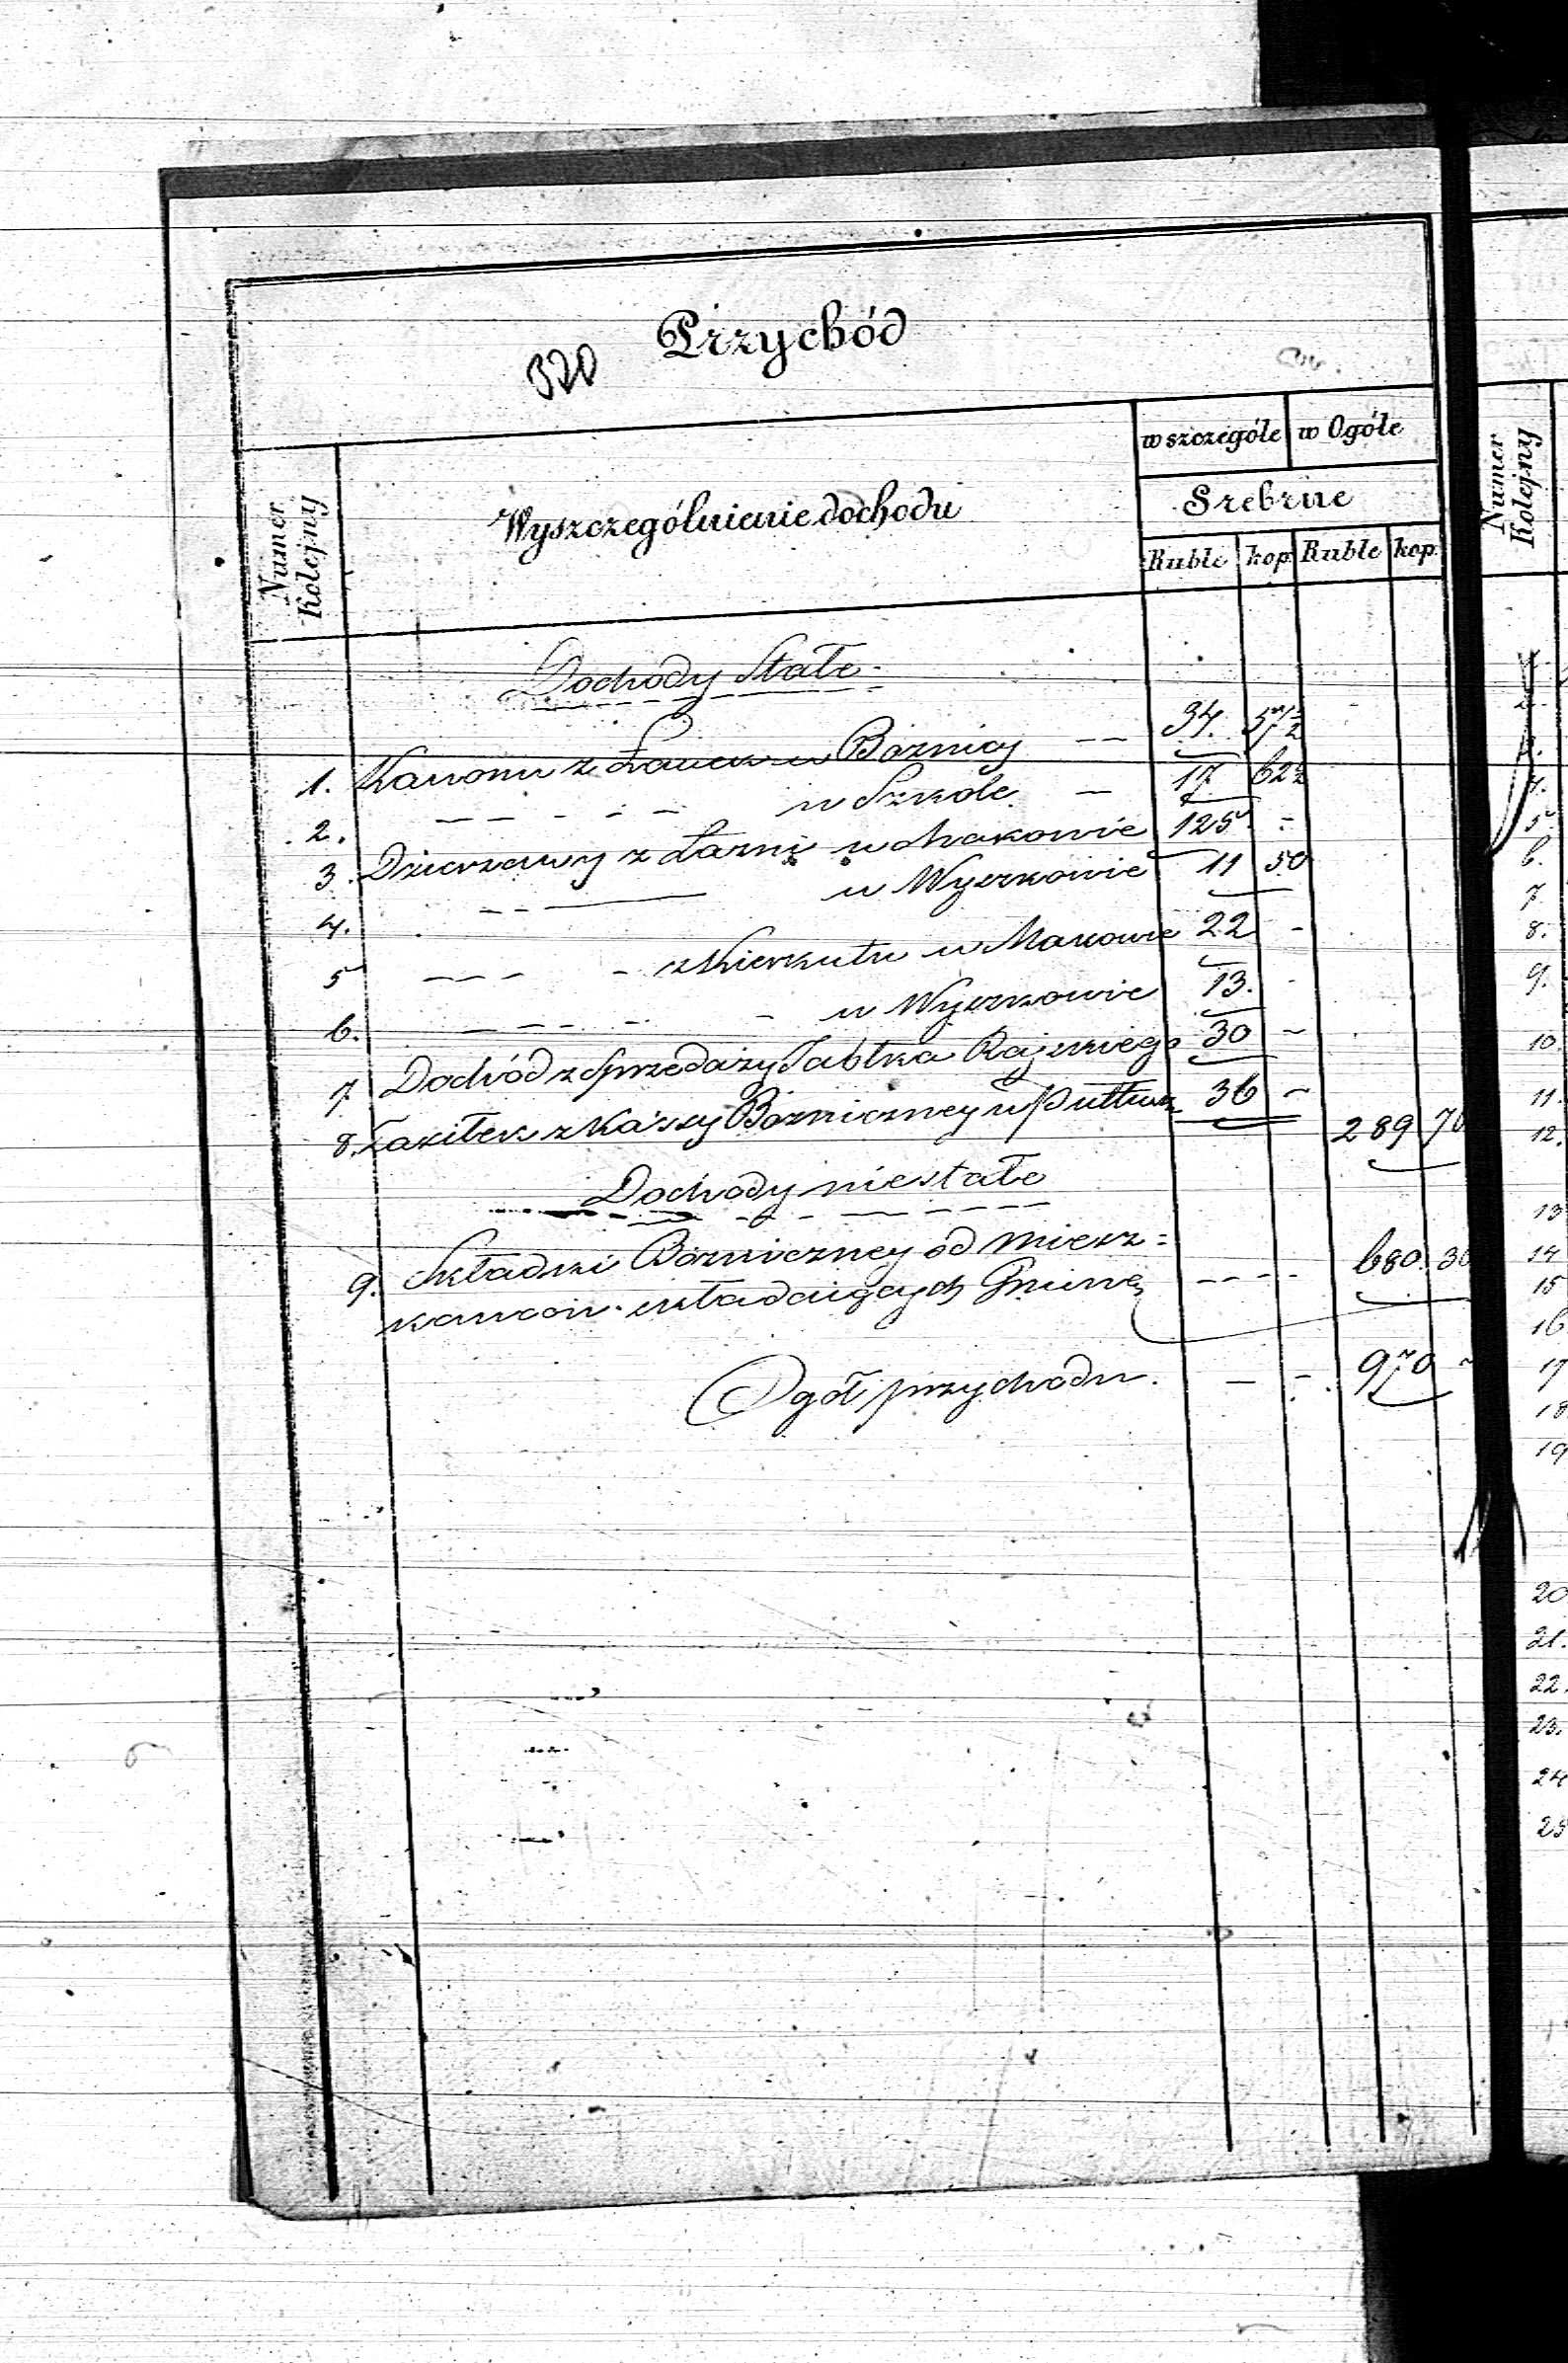 Przychód
320
Numer Kolejny
Wyszczególnienie dochodu
w szczególe w Ogóle
Srebrne
Ruble kop. Ruble kop.
Dochody Stałe
1. Kanonu z Ławek w Bóżnicy — — 34. 57½
2. — — — — w Szkole — 17 62½
3. Dzierżawy z Łazni w Makowie 125 -
4. — — — w Wyszkowie 11 50
5 — — — - z Kierkutu w Makowie 22 -
6. — — — — - w Wyszkowie 13. -
7 Dochód z sprzedaży Jabłka Rajskiego 30 -
8. Zasiłek z Kassy Bózniczney w Pułtusk 36 -
289 70
Dochody niestałe
9. Składki Bózniczney od miesz=
kancow składaiących Gminę - - - - 680. 30
Ogół przychodu. — - 970 -
Numer Kolejny
4.
5
6.
7
8.
9.
10
11.
12.
13
14
15
16
17
18
19
20
21.
22.
23.
24
25